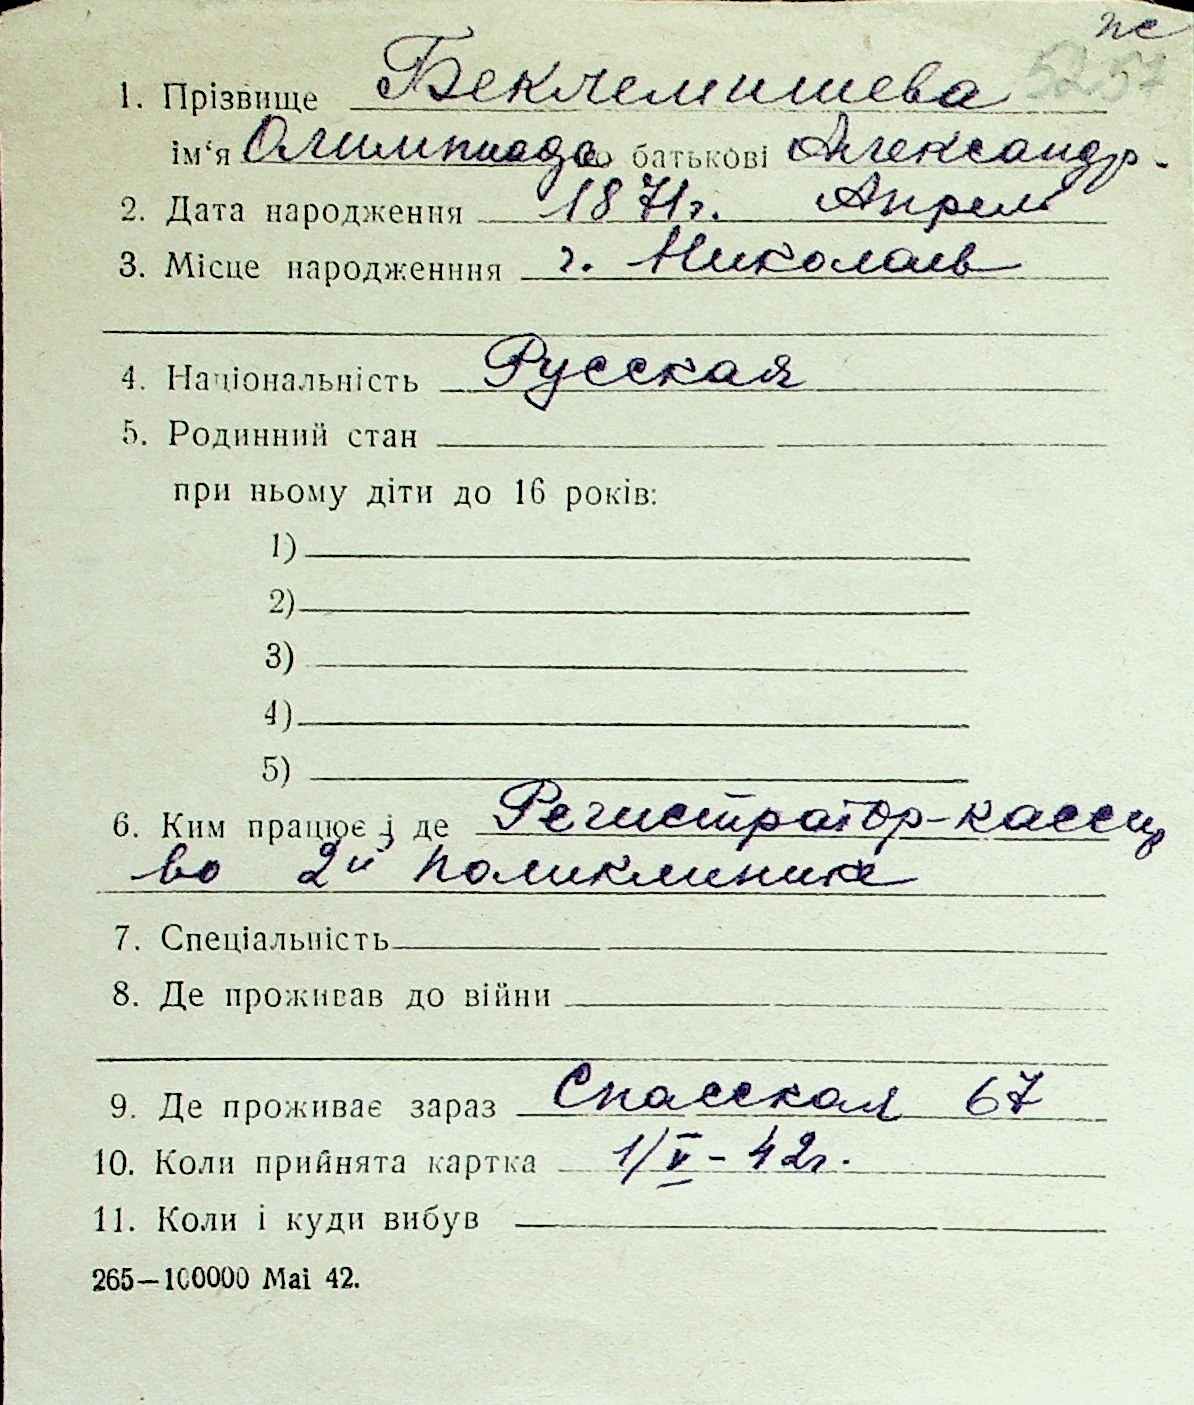 же
5257
1. Прізвище Беклемишева
ім‘я Олимпиада по батькові Александр.
2. Дата народження 1871г. Апрель
3. Місце народженння г. Николаев
4. Національність Русская
5. Родинний стан
при ньому діти до 16 років:
1)
2)
3)
4)
5)
6. Ким працює і де Регистратор-кассир
во 2й поликлинике
7. Спеціальність
8. Де проживав до війни
9. Де проживає зараз Спасская 67
10. Коли прийнята картка 1/V-42г.
11. Коли і куди вибув
265—100000 Mai 42.